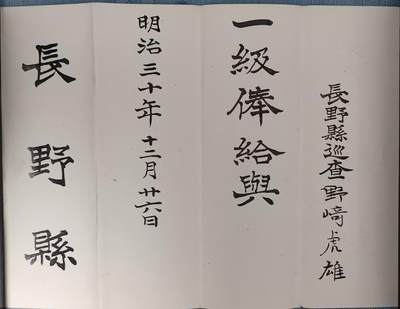 長野縣巡査野﨑虎雄
一級俸給與
明治三十年十二月廿六日
長野縣